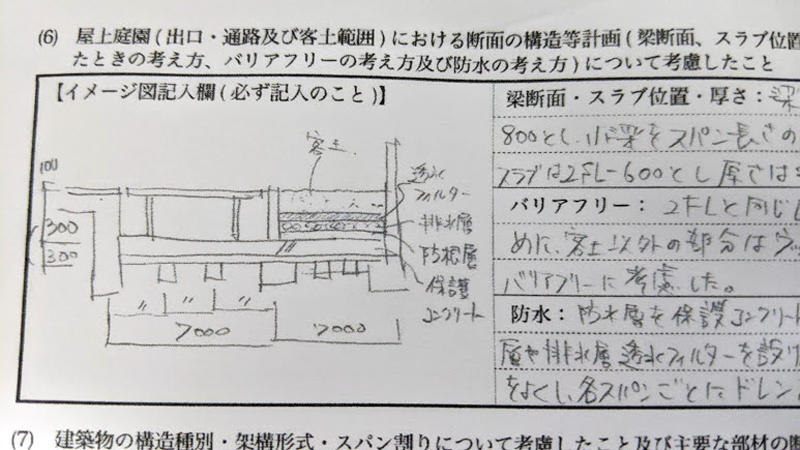 (6) 屋上庭園(出口・通路及び客土範囲)における断面の構造等計画(梁断面、スラブ位置
たときの考え方、バリアフリーの考え方及び防水の考え方)について考慮したこと
【イメージ図記入欄(必ず記入のこと)】
客土
透水
フィルター
排水層
防根層
保護
コンクリート
100
300
300
7000
7000
梁断面・スラブ位置・厚さ:梁
800とし、小梁をスパン長さの
スラブは2FL-600とし厚さは
バリアフリー:2FLと同じ
めに、客土以外の部分はウッ
バリアフリーに考慮した。
防水:防水層を保護コンクリート
層や排水層透水フィルターを設け
をよくし、各スパンごとにドレン
(7) 建築物の構造種別・架構形式・スパン割りについて考慮したこと及び主要な部材の断